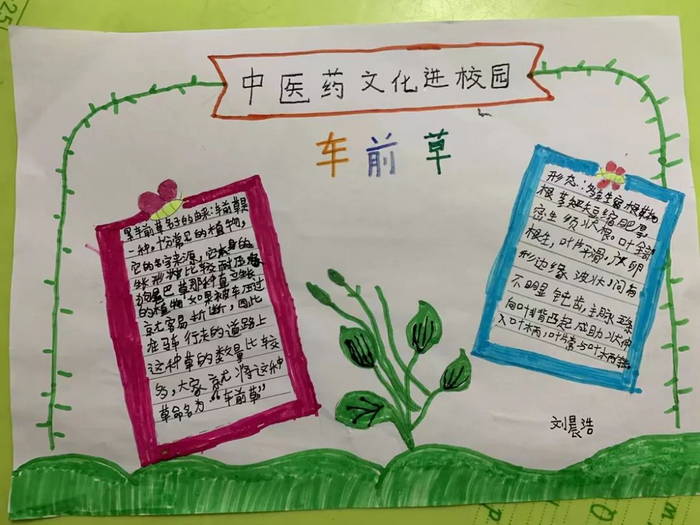 中医药文化进校园
车前草
车前草名字的由来:车前草是
一种十分常见的植物,
它的名字来源,它本身的
形状比较耐压
狗尾巴草那种直
的植物,如果被车压过
就容易折断,因此
在马车行走的道路上
这种草的数量比较
多,大家就将这种
草命名为“车前草”
形态:多年生宿根草物
根茎短缩肥厚
密生须状根。叶全部
根生,叶片平滑,广卵
形边缘波状,间有
不明显钝齿,主脉五条
向叶背凸起,成肋状伸
入叶柄,叶片常与叶柄等
刘晨浩